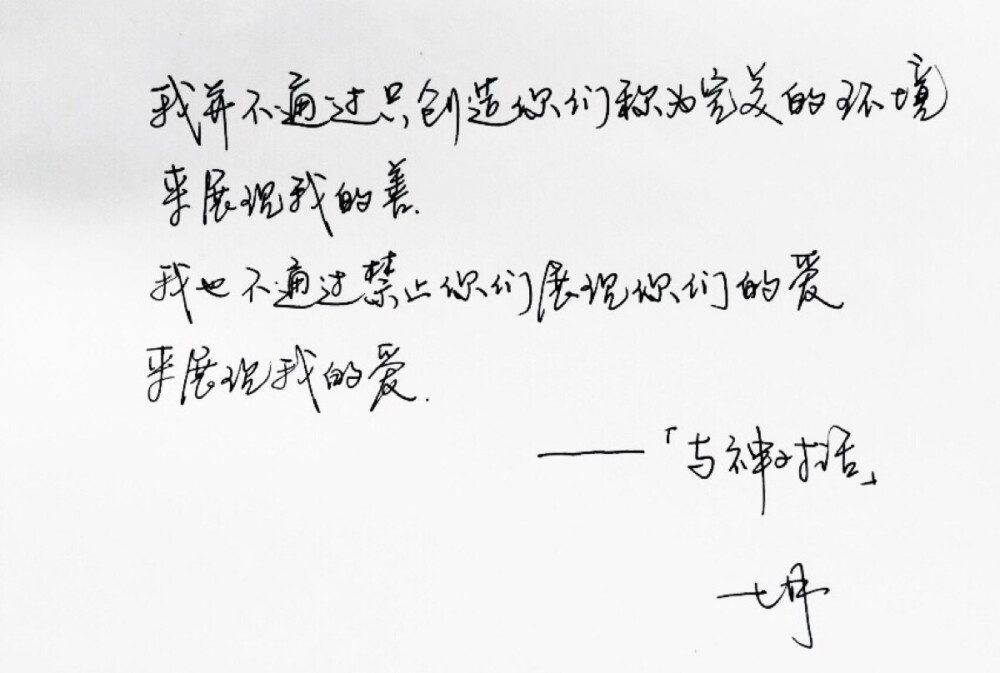 我并不通过只创造你们称为完美的环境
来展现我的善.
我也不通过禁止你们展现你们的爱
来展现我的爱.
——「与神对话」